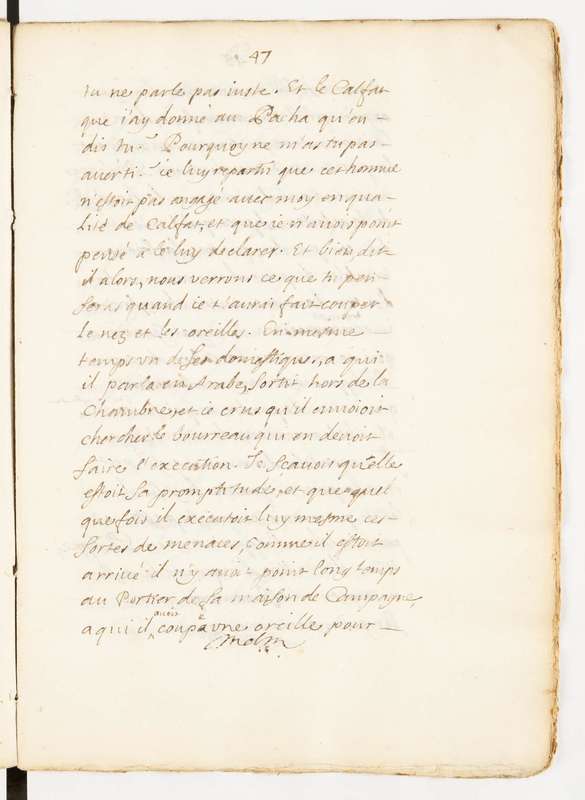 47
tu ne parle pas iuste. Et le Calfat
que i'ay donné au Pacha qu'en
dis tu. Pourquoy ne m'as tu pas
averti. ie luy repartis que cet homme
n'estoit pas engagé avec moy en qua
lité de Calfat, et que ie n'avois point
pensé a le luy declarer. Et bien dit
il alors, nous verrons ce que tu pen
seras quand ie t'aurai fait couper
le nez et les oreilles. En mesme
temps un de ses domestiques, a qui
il parla en Arabe, sortit hors de la
Chambre, et ie crus qu'il envoioit
chercher le bourreau qui en devoit
faire l'execution. Je sçavois quelle
estoit sa promptitude, et que quel
quefois il executoit luy mesme ces
sortes de menaces, comme il estoit
arrivé il n'y avoit point long temps
au Portier de sa maison de Campagne,
a qui il avoit coupé une oreille pour